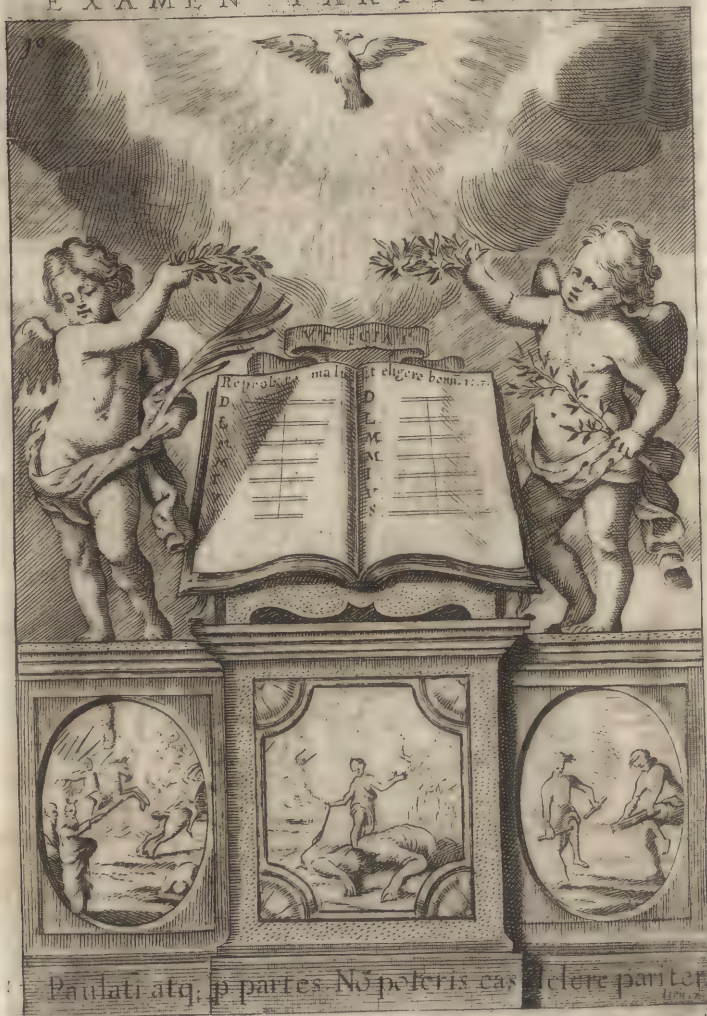 EXAMEN
VT SCIAT
Reprobare malū Et eligere bonū.
D D
L L
M M
M M
I
V
S
Paulatī atq; p partes Nō poteris eas delere pariter